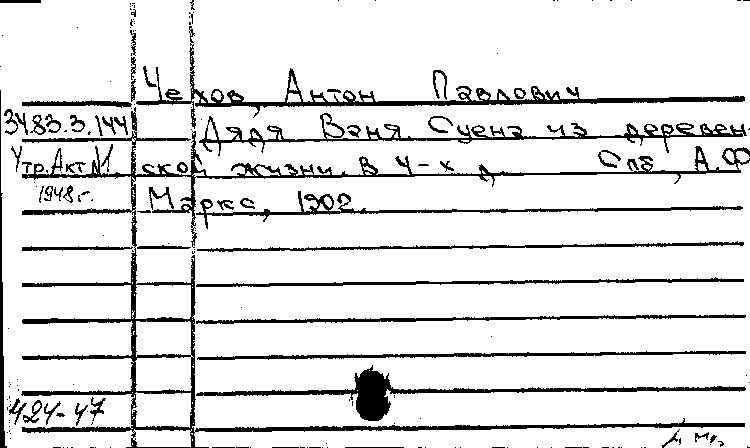 Чехов, Антон Павлович
34.83.3.144 Дядя Ваня. Сцена из деревен
Утр. Акт №1. ской жизни. В 4-х д. Спб, А.Ф
1948 г. Маркс, 1902.
424-47